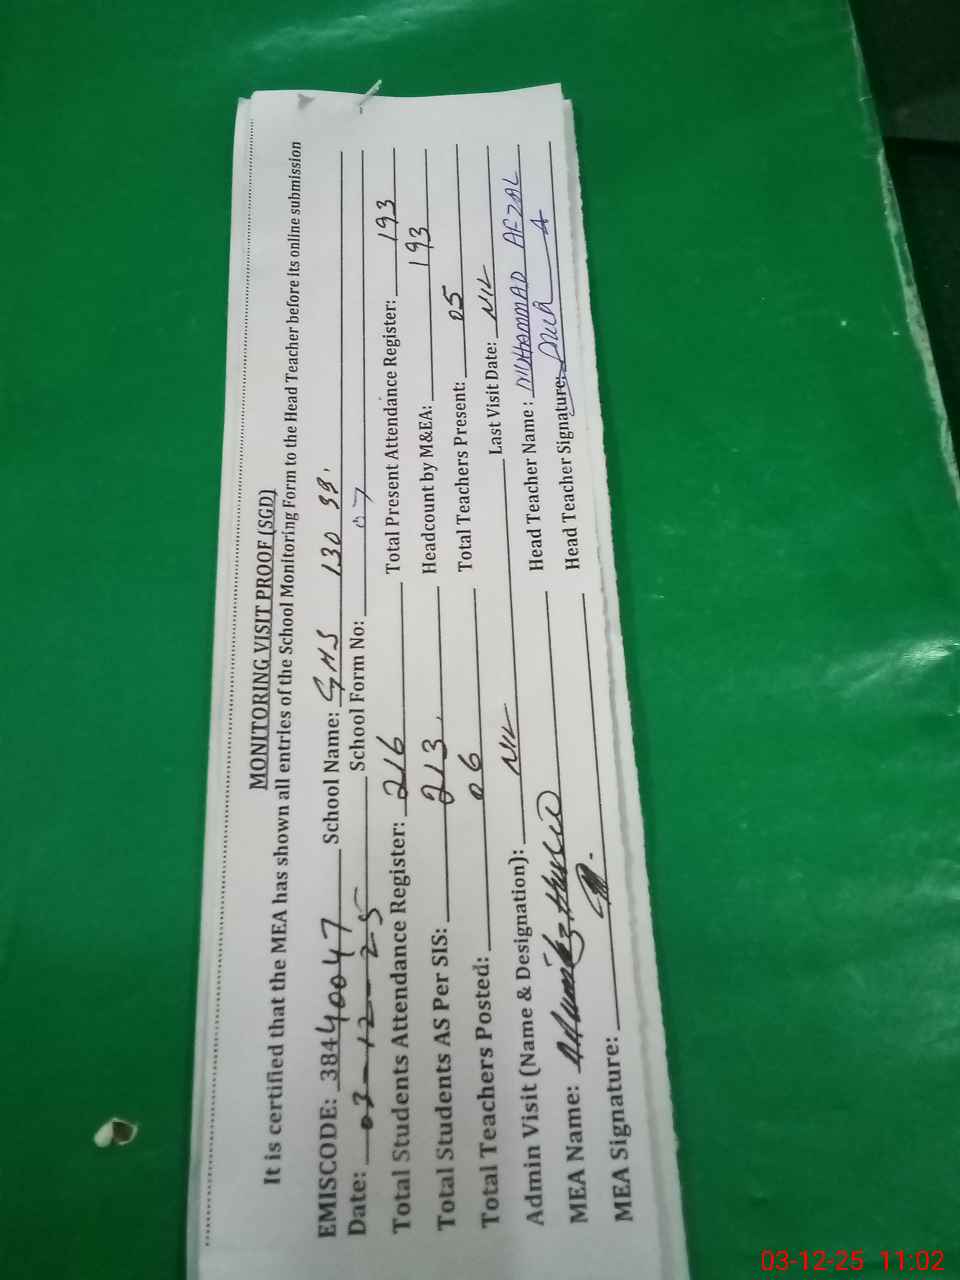 MONITORING VISIT PROOF (SGD)
It is certified that the MEA has shown all entries of the School Monitoring Form to the Head Teacher before its online submission
EMISCODE: 38440047 School Name: GHS 130 SB.
Date: 03-12-25 School Form No: 07
Total Students Attendance Register: 216 Total Present Attendance Register: 193
Total Students AS Per SIS: 213. Headcount by M&EA: 193
Total Teachers Posted: 06 Total Teachers Present: 05
Admin Visit (Name & Designation): NIL Last Visit Date: NIL
MEA Name: Head Teacher Name: MUHAMMAD AFZAL
MEA Signature: Head Teacher Signature:
03-12-25 11:02